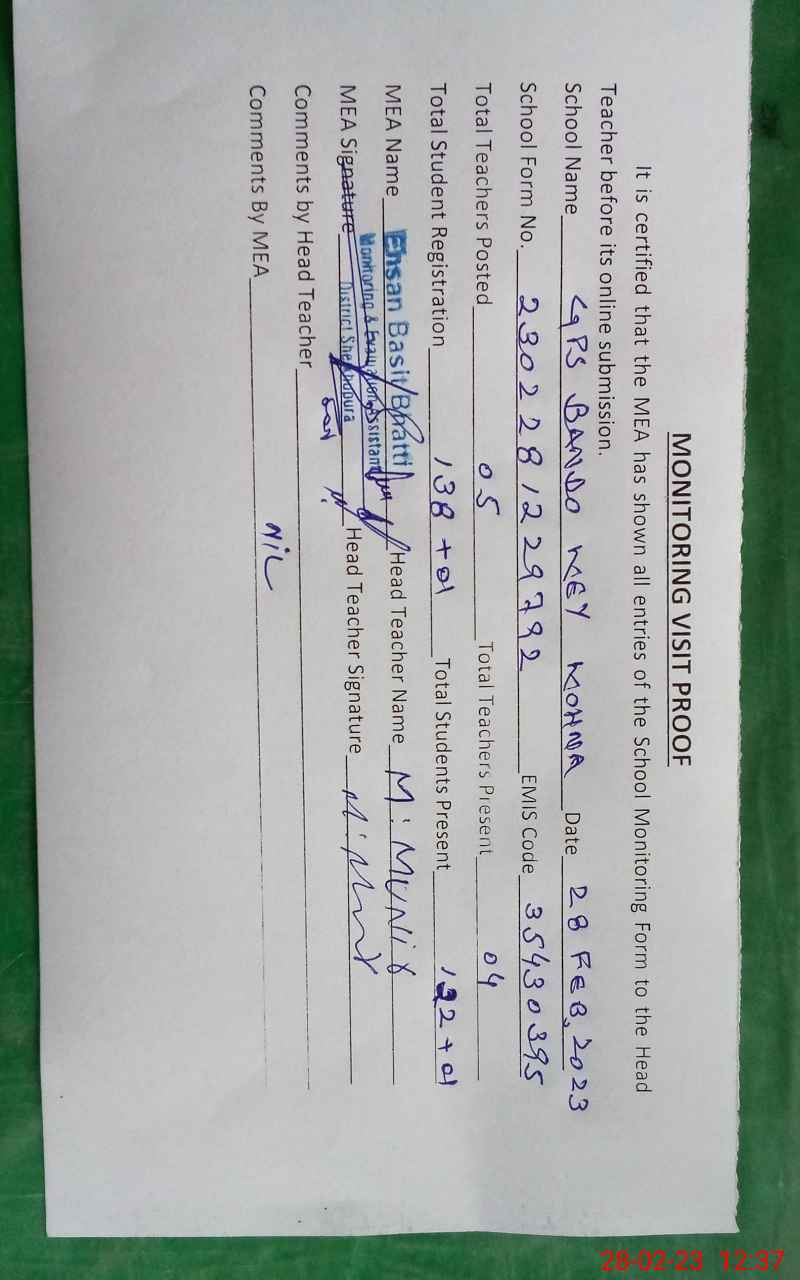 MONITORING VISIT PROOF
It is certified that the MEA has shown all entries of the School Monitoring Form to the Head
Teacher before its online submission.
School Name GPS BANDO MEY MOHNA Date 28 FEB, 2023
School Form No. 23022812229792 EMIS Code 35430395
Total Teachers Posted 05 Total Teachers Present 04
Total Student Registration 138 + 01 Total Students Present 132 + 01
MEA Name Ehsan Basit Bhatti Head Teacher Name M. MUNIR
Monitoring & Evaluation Assistant
MEA Signature District Sheikhupura Head Teacher Signature
Comments by Head Teacher
Comments By MEA NIL
28-02-23 12:37